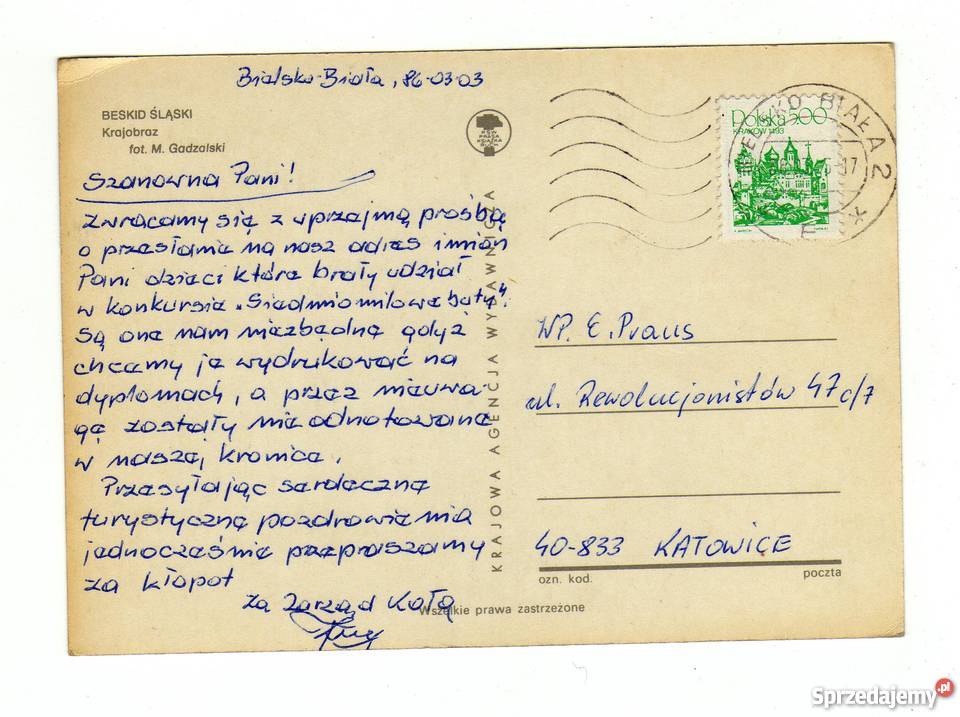 Bielsko-Biała, 86-03-03
BESKID ŚLĄSKI
Krajobraz
fot. M. Gadzalski
PSW PRASA KSIĄŻKA RUCH
Polska 5.00
KRAKÓW 1493
BIELSKO BIAŁA 2
Szanowna Pani!
Zwracamy się z uprzejmą prośbą
o przesłanie na nasz adres imion
Pani dzieci które brały udział
w konkursie „Siedmiomilowe buty".
Są one nam niezbędne gdyż
chcemy je wydrukować na
dyplomach, a przez nieuwa-
gę zostały nie odnotowane
w naszej kronice.
Przesyłając serdeczne
turystyczne pozdrowienia
jednocześnie przepraszamy
za kłopot
Za Zarząd Koła
KRAJOWA AGENCJA WYDAWNICZA
WP. E. Praus
ul. Rewolucjonistów 47c/7
40-833 KATOWICE
ozn. kod. poczta
Wszelkie prawa zastrzeżone
Sprzedajemy.pl